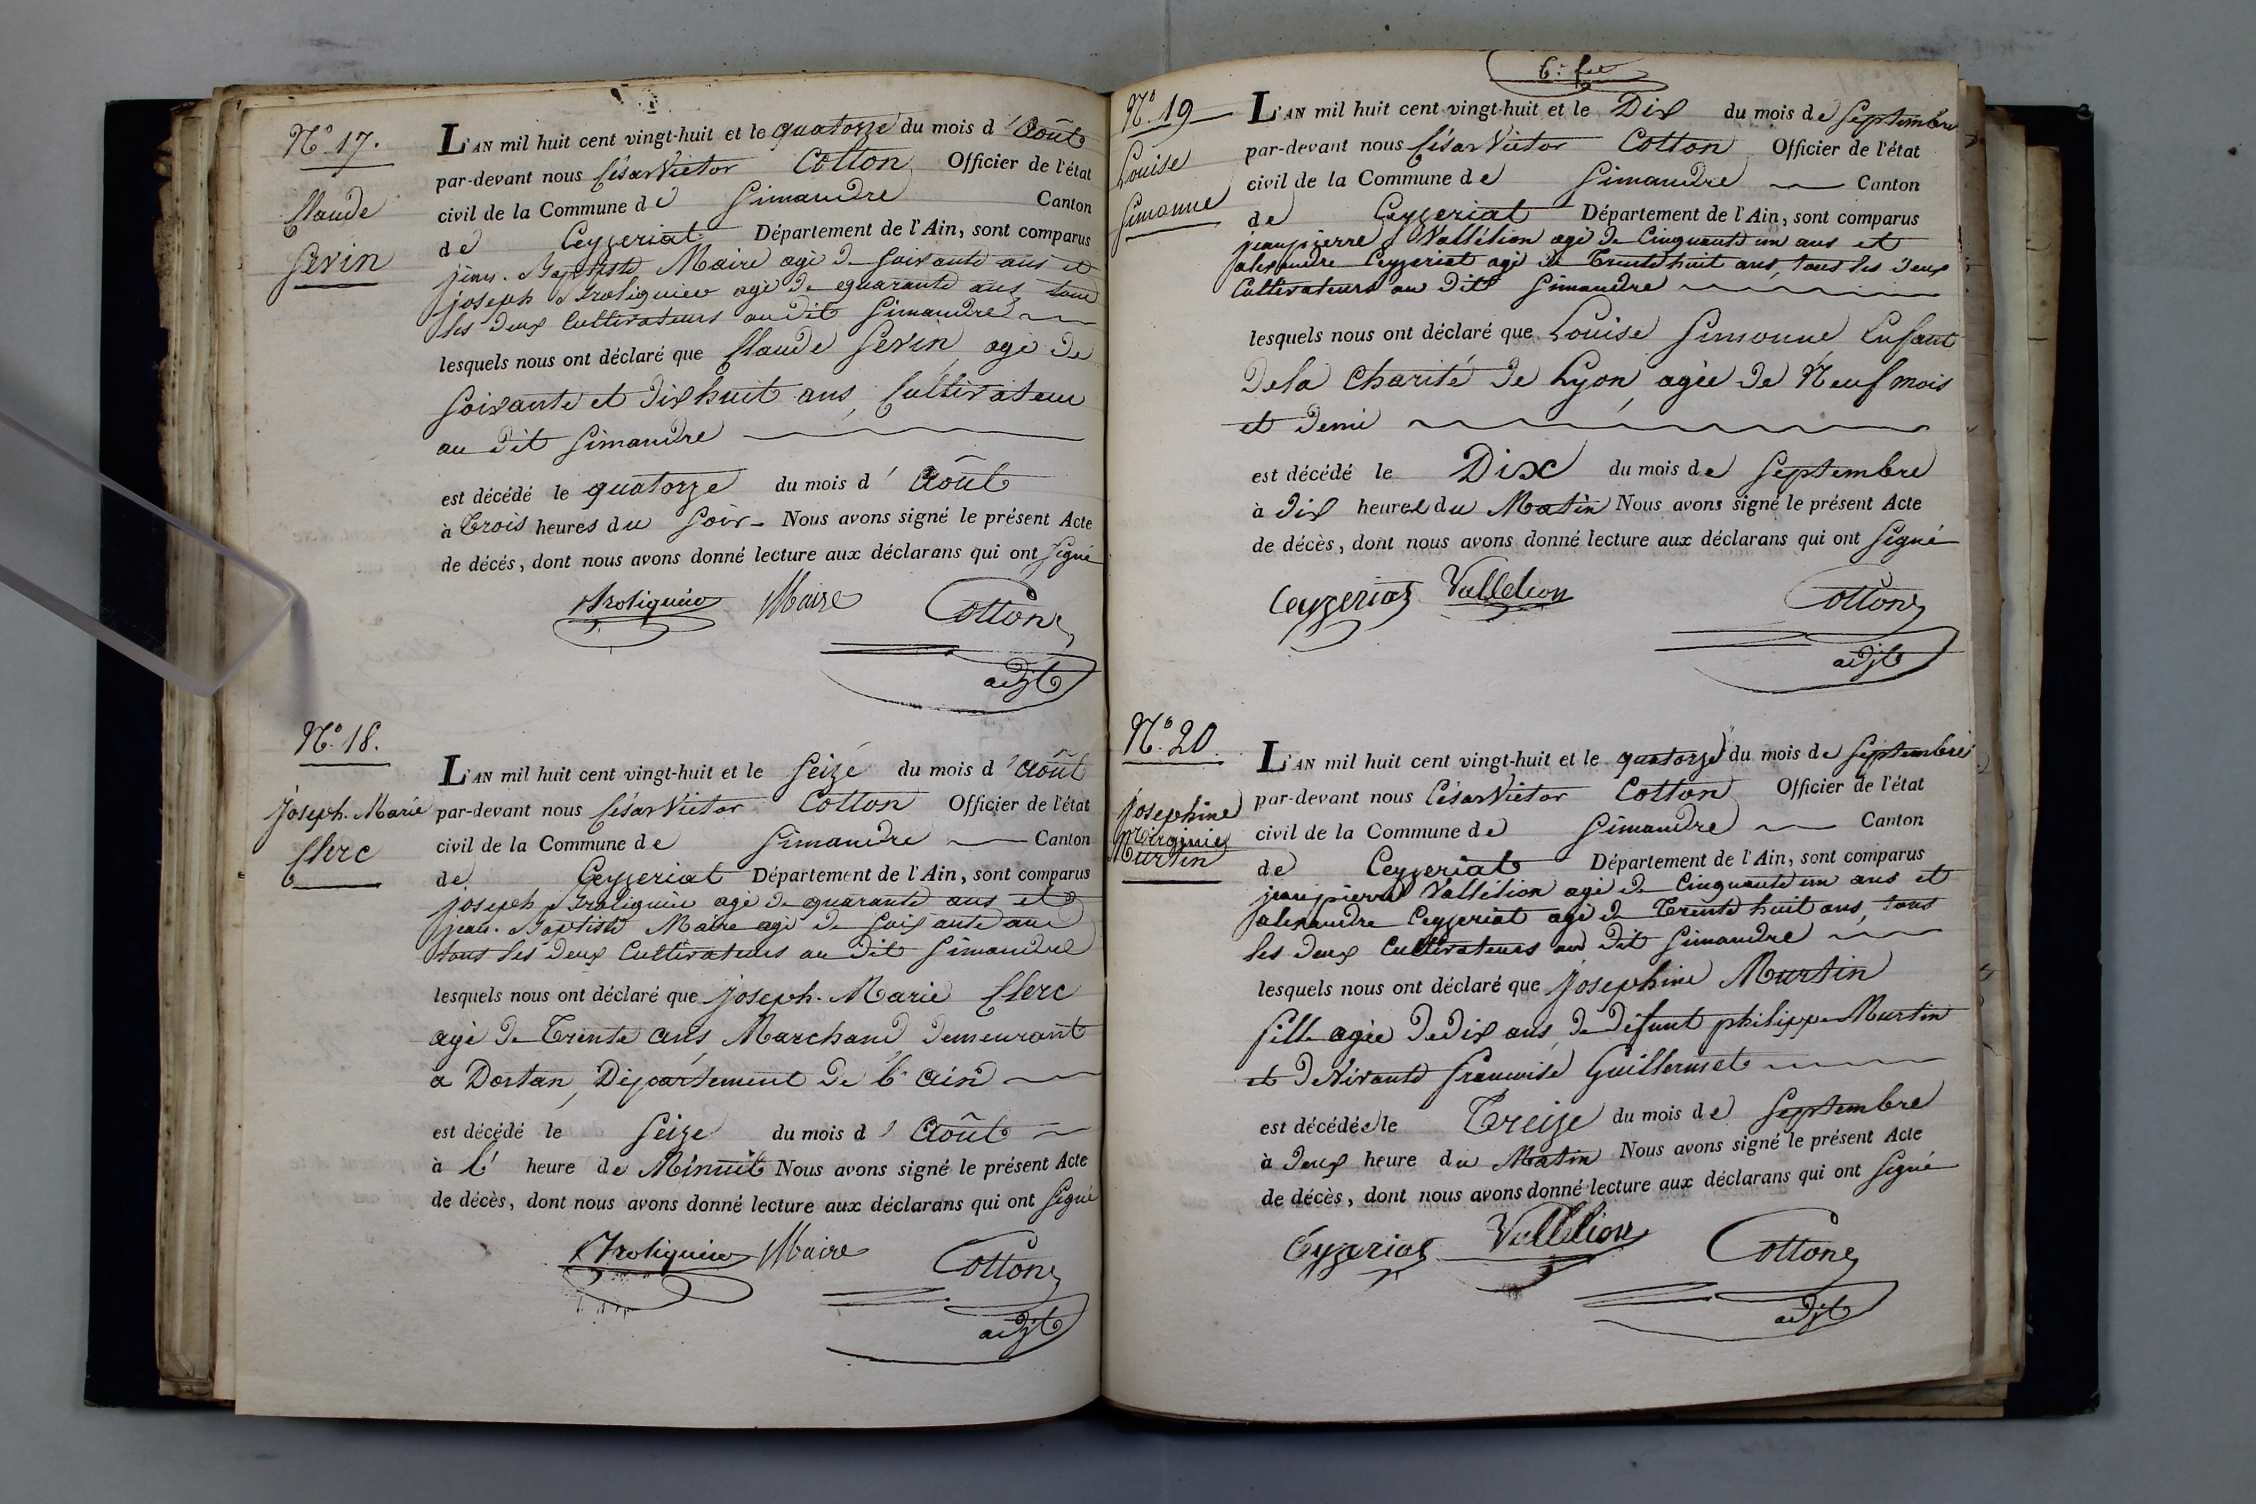 N.o 17.
Claude
Sevin
L'AN mil huit cent vingt-huit et le quatorze du mois d'Août
par-devant nous César Victor Cotton Officier de l'état
civil de la Commune de Simandre Canton
de Ceyzeriat Département de l'Ain, sont comparus
jean-Baptiste Maire agé de soixante ans et
joseph agé de quarante ans tous
les deux Cultivateurs au dit Simandre
lesquels nous ont déclaré que Claude Sevin, agé de
soixante et dix huit ans, Cultivateur
au dit Simandre
est décédé le quatorze du mois d'Août
à Trois heures du Soir - Nous avons signé le présent Acte
de décés, dont nous avons donné lecture aux déclarans qui ont Signé
Maire Cotton
adjt
N.o 18.
Joseph-Marie
Clerc
L'AN mil huit cent vingt-huit et le Seize du mois d'Août
par-devant nous César Victor Cotton Officier de l'état
civil de la Commune de Simandre Canton
de Ceyzeriat Département de l'Ain, sont comparus
joseph agé de quarante ans et
jean-Baptiste Maire agé de soixante ans
tous les deux Cultivateurs au dit Simandre
lesquels nous ont déclaré que joseph-Marie Clerc
agé de Trente ans, Marchand demeurant
a Dortan, Département de l'Ain
est décédé le Seize du mois d'Août
à l' heure de Minuit Nous avons signé le présent Acte
de décès, dont nous avons donné lecture aux déclarans qui ont Signé
Maire Cotton
adjt
6.e fet
N.o 19
Louise
Simonne
L'AN mil huit cent vingt-huit et le Dix du mois de Septembre
par-devant nous César Victor Cotton Officier de l'état
civil de la Commune de Simandre Canton
de Ceyzeriat Département de l'Ain, sont comparus
jean pierre Vallélion agé de Cinquante un ans et
alexandre Ceyzeriat agé de Trente huit ans, tous les deux
Cultivateurs au dit Simandre
lesquels nous ont déclaré que Louise Simonne Enfant
de la Charité de Lyon, agée de Neuf mois
et demi
est décédé le Dix du mois de Septembre
à dix heures du Matin Nous avons signé le présent Acte
de décès, dont nous avons donné lecture aux déclarans qui ont Signé
Ceyzeriat Vallelion Cotton
adjt
N.o 20
Josephine
Virginie
Murtin
L'AN mil huit cent vingt-huit et le quatorze du mois de Septembre
par-devant nous César Victor Cotton Officier de l'état
civil de la Commune de Simandre Canton
de Ceyzeriat Département de l'Ain, sont comparus
jean pierre Vallélion agé de Cinquante un ans et
alexandre Ceyzeriat agé de Trente huit ans, tous
les deux Cultivateurs au dit Simandre
lesquels nous ont déclaré que Josephine Murtin
fille agée de dix ans, de défunt philippe Murtin
et de Vivante francoise Guillermet
est décédée le Treize du mois de Septembre
à deux heure du Matin Nous avons signé le présent Acte
de décès, dont nous avons donné lecture aux déclarans qui ont Signé
Ceyzeriat Vallelion Cotton
adjt